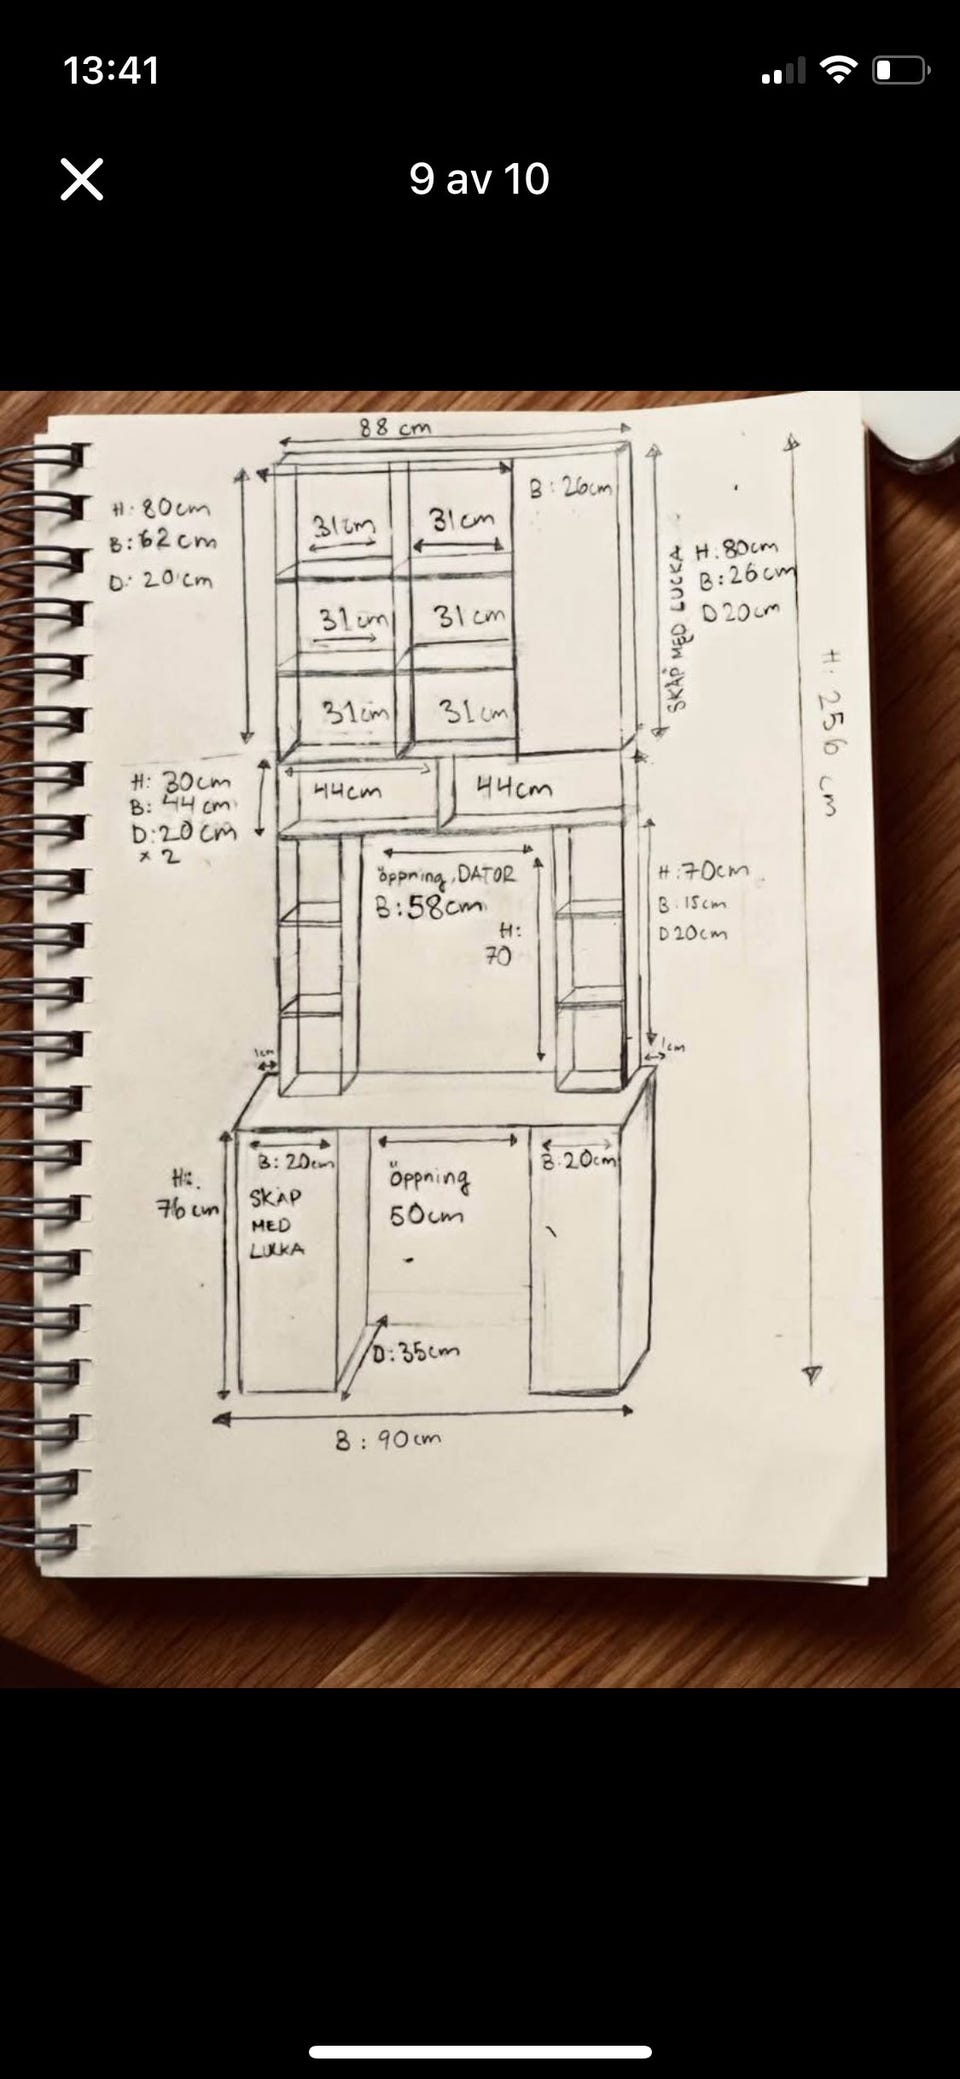 13:41
9 av 10
88 cm
H: 80cm
B: 62cm
D: 20cm
31cm
31cm
B: 26cm
31cm
31cm
31cm
31cm
SKÅP MED LUCKA
H: 80cm
B: 26cm
D 20cm
H: 256 cm
H: 30cm
B: 44cm
D: 20cm
x 2
44cm
44cm
öppning, DATOR
B: 58cm
H:
70
H: 70cm
B: 15cm
D 20cm
1cm
1cm
H:
76cm
B: 20cm
SKÅP
MED
LUCKA
öppning
50cm
B: 20cm
D: 35cm
B: 90cm